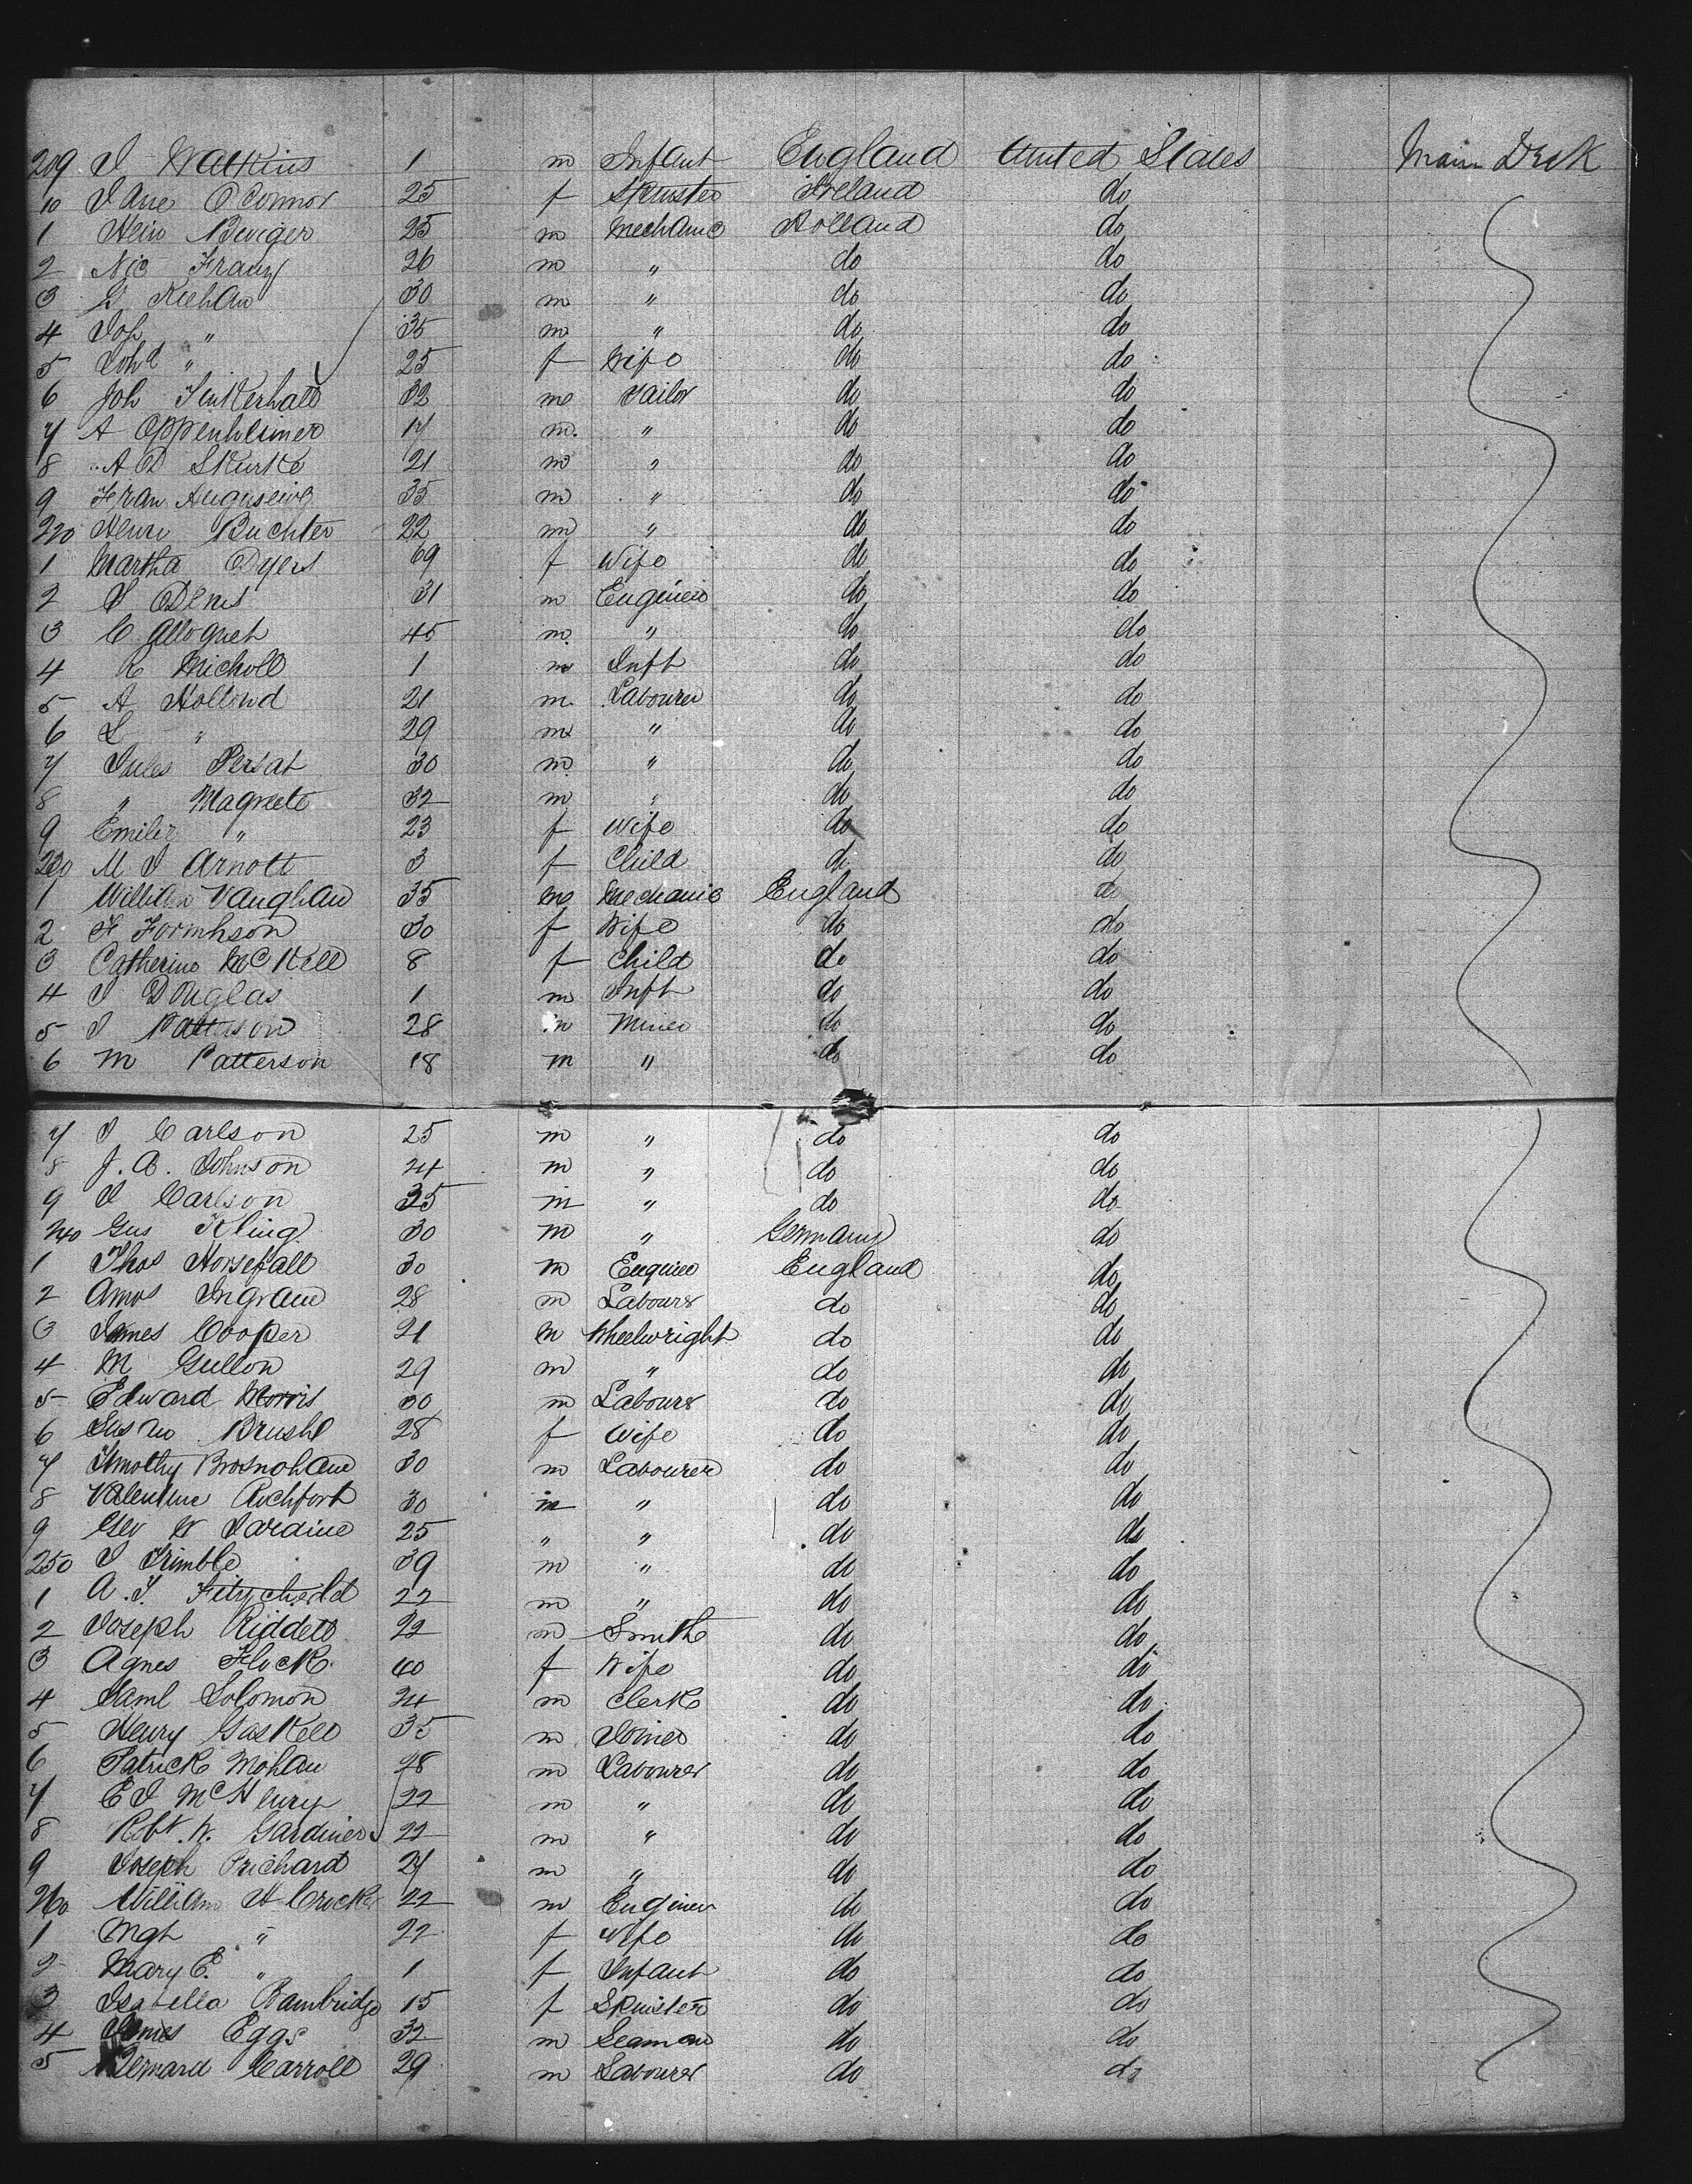 209 J Watkins 1 m Infant England United States Main Deck
10 Jane O'Connor 25 f Spinster Ireland do
1 Hein 25 m Mechanic Holland do
2 Nic Franz 26 m " do do
3 30 m " do do
4 Joh " 35 m " do do
5 " 25 f Wife do do
6 Joh 32 m Tailor do do
7 A Oppenheimer 17 m. " do do
8 A D Skurke 21 m " do do
9 Fran 35 m " do do
220 Henri Buchter 22 m " do do
1 Martha Dyers 69 f Wife do do
2 J Denis 31 m Engineer do do
3 C 45 m " do do
4 R Nicholl 1 m Inft do do
5 A Hollowd 21 m Labourer do do
6 L " 29 m " do do
7 Jules Persat 30 m " do do
8 " Magnete 32 m " do do
9 Emilie " 23 f Wife do do
230 M J Arnott 3 f Child do do
1 William Vaughan 35 m Mechanic England do
2 F Formhson 30 f Wife do do
3 Catherine McKell 8 f Child do do
4 J Douglas 1 m Inft do do
5 J Patterson 28 m Miner do do
6 M Patterson 18 m " do do
7 J Carlson 25 m " do do
8 J. A. Johnson 24 m " do do
9 J Carlson 35 m " do do
240 Gus Kling 30 m " Germany do
1 Thos Horsefall 30 m Engineer England do
2 Amos Ingram 28 m Labourer do do
3 James Cooper 21 m Wheelwright do do
4 M Gullon 29 m " do do
5 Edward Morris 30 m Labourer do do
6 Susan Brushl 28 f Wife do do
7 Timothy Brosnohane 30 m Labourer do do
8 Valentine Rochfort 30 m " do do
9 Geo W Jardine 25 " " do do
250 J Trimble 39 m " do do
1 A. J. 22 m " do do
2 Joseph Riddell 22 m Smith do do
3 Agnes Flock 40 f Wife do do
4 Saml Solomon 24 m Clerk do do
5 Henry Gaskell 35 m Joiner do do
6 Patrick Mohan 28 m Labourer do do
7 E J McHenry 22 m " do do
8 Robt W. Gardiner 22 m " do do
9 Joseph Prichard 27 m " do do
260 William H Crocker 22 m Engineer do do
1 Mgt " 22 f Wife do do
2 Mary E. " 1 f Infant do do
3 Isabella Bambridge 15 f Spinster do do
4 James Eggs 32 m Seaman do do
5 Bernard Carroll 29 m Labourer do do